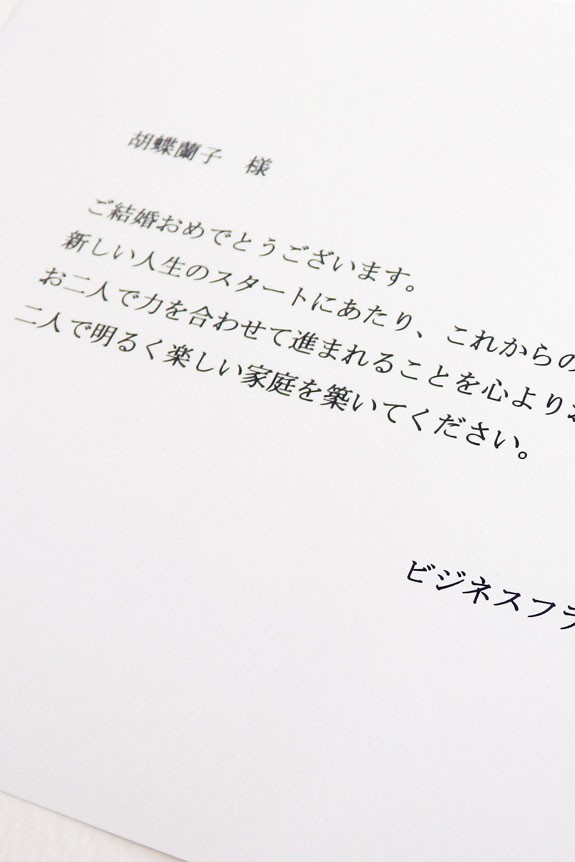 胡蝶蘭子　様
ご結婚おめでとうございます。
新しい人生のスタートにあたり、これからの
お二人で力を合わせて進まれることを心より
二人で明るく楽しい家庭を築いてください。
ビジネスフラ